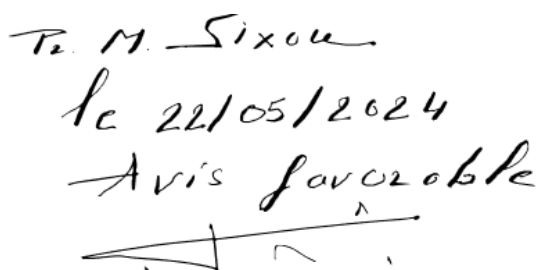 Pr. M. Sixou
le 22/05/2024
Avis favorable